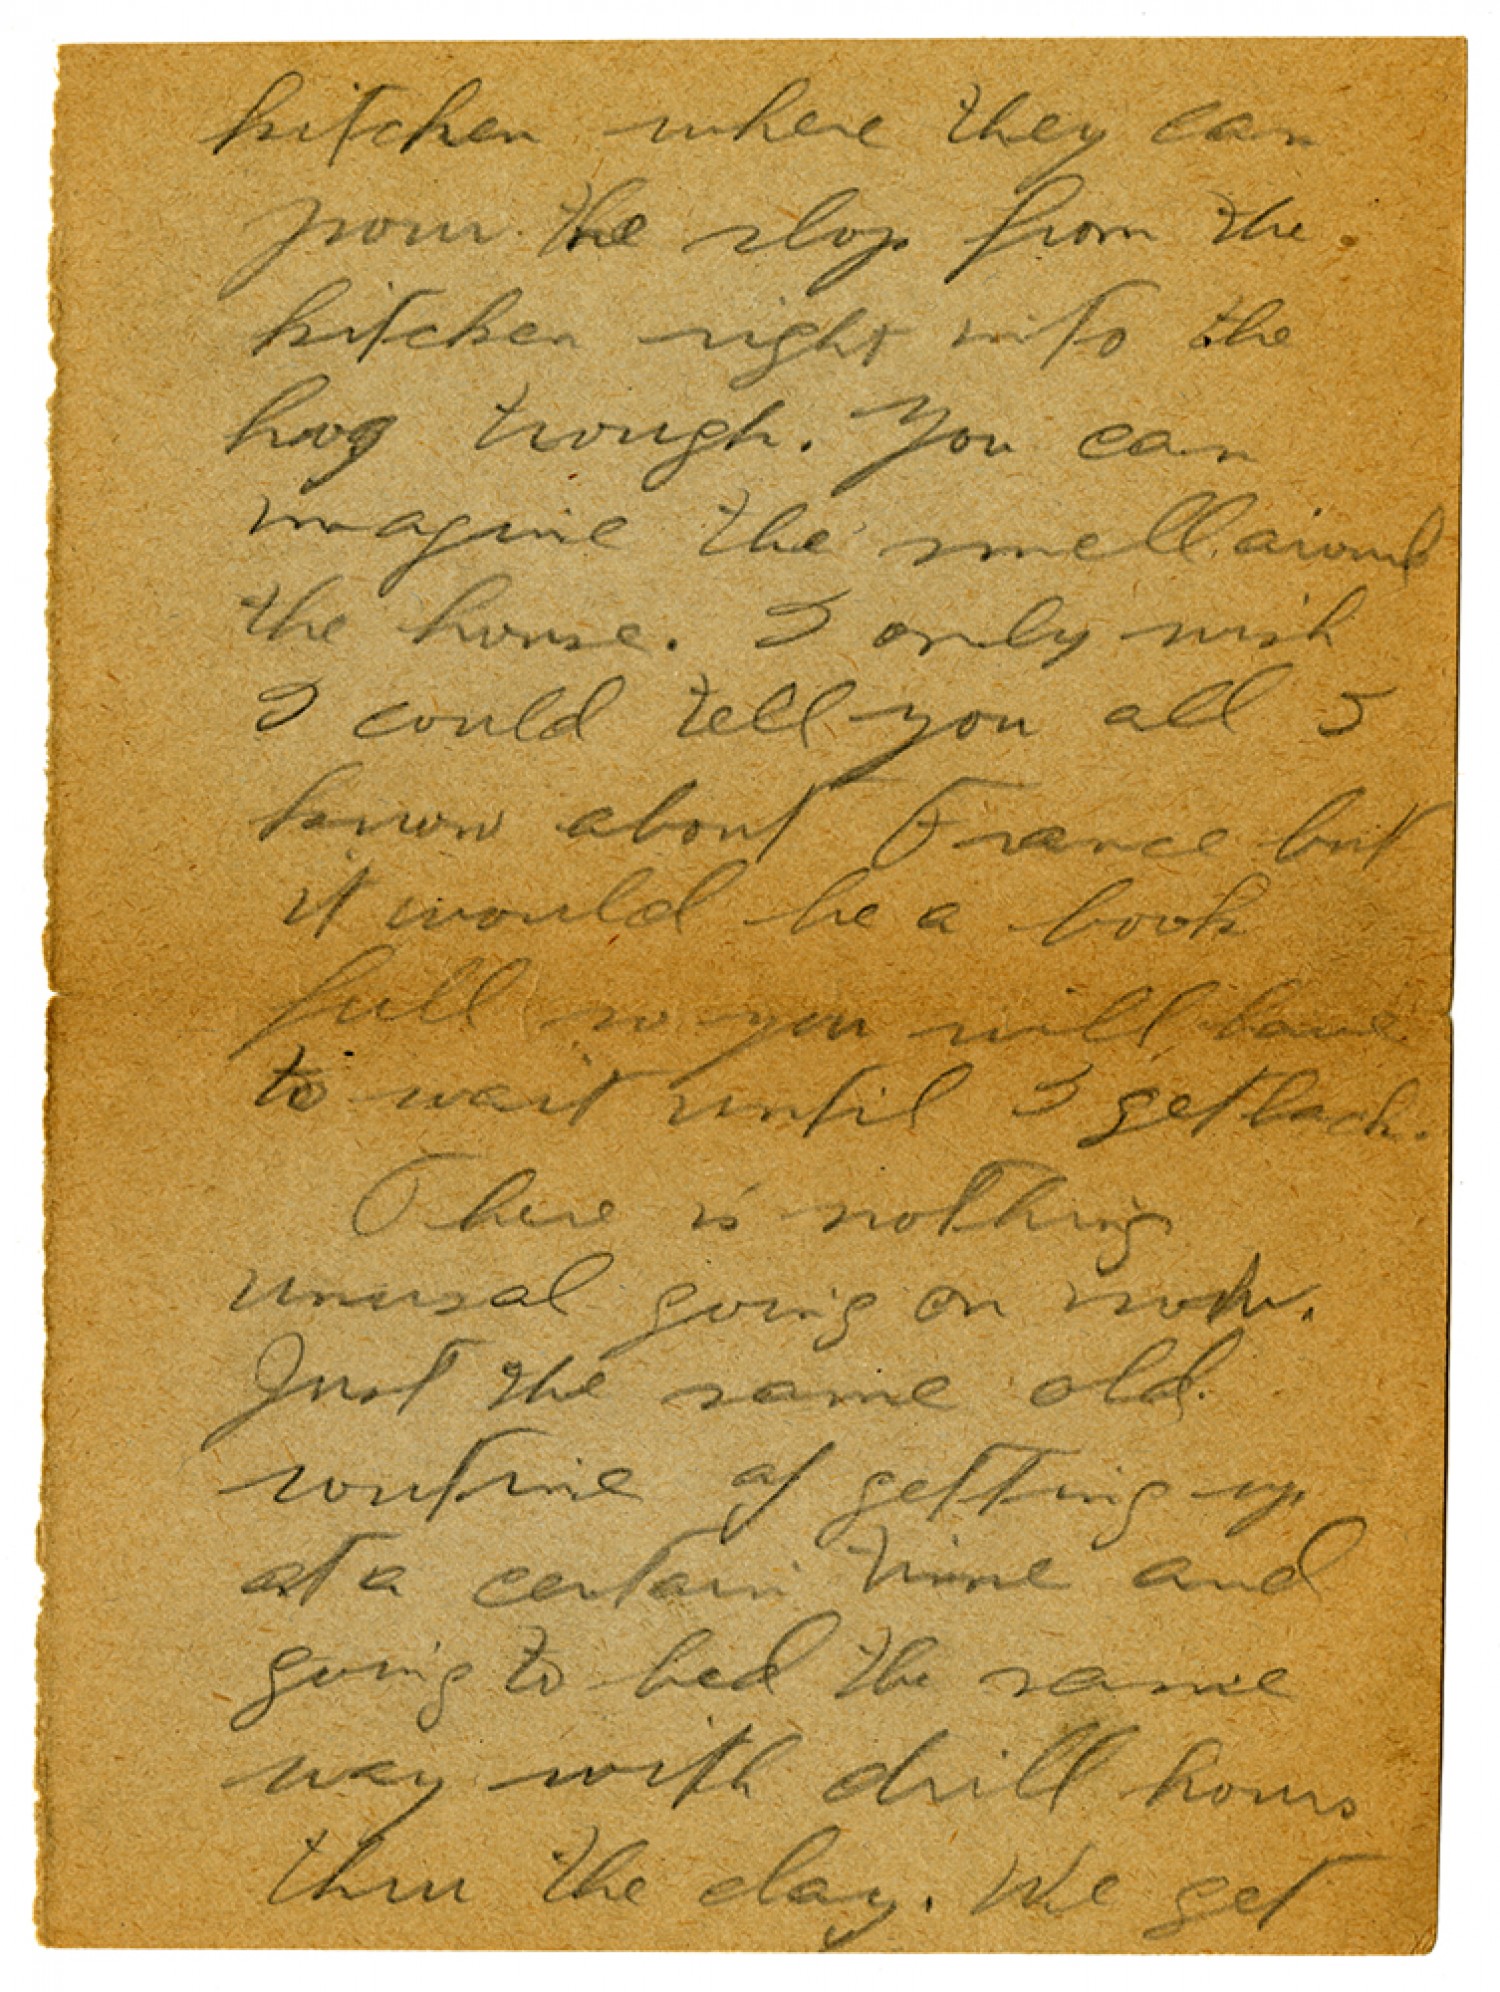 kitchen where they can
pour the slop from the
kitchen right into the
hog trough. You can
imagine the smell around
the house. I only wish
I could tell you all I
know about France but
it would be a book
full so you will have
to wait until I get back.
There is nothing
unusal going on now.
Just the same old
routine of getting up
at a certain time and
going to bed the same
way with drill hours
thru the day. We get